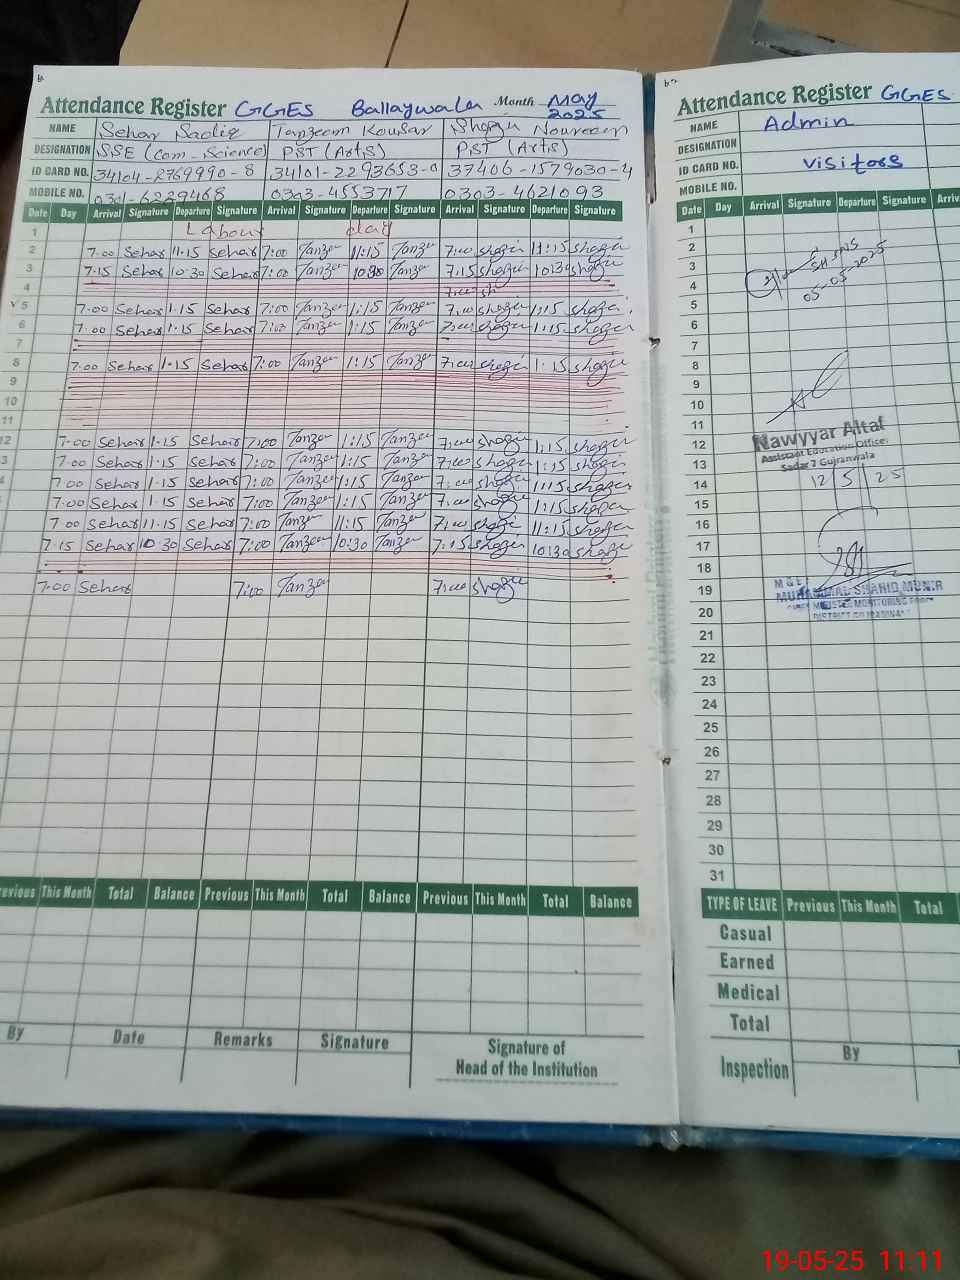 Attendance Register GGES Ballaywala Month May 2025
NAME Sehar Sadiq Tanzeem Kousar Shazia Noureen
DESIGNATION SSE (Com-Science) PST (Arts) PST (Arts)
ID CARD NO. 34104-2769990-8 34101-2293653-0 37406-1579030-4
MOBILE NO. 0301-6229468 0303-4553717 0303-4621093
Date Day Arrival Signature Departure Signature Arrival Signature Departure Signature Arrival Signature Departure Signature
1 Labour day
2 7:00 Sehar 11:15 Sehar 7:00 Tanzee 11:15 Tanzee 7:00 Shazia 11:15 Shazia
3 7:15 Sehar 10:30 Sehar 7:00 Tanzee 10:30 Tanzee 7:15 Shazia 10:30 Shazia
4 7:00 Sh
5 7:00 Sehar 1:15 Sehar 7:00 Tanzee 1:15 Tanzee 7:00 Shazia 1:15 Shazia
6 7:00 Sehar 1:15 Sehar 7:00 Tanzee 1:15 Tanzee 7:00 Shazia 1:15 Shazia
7
8 7:00 Sehar 1:15 Sehar 7:00 Tanzee 1:15 Tanzee 7:00 Shazia 1:15 Shazia
9
10
11
12 7:00 Sehar 1:15 Sehar 7:00 Tanzee 1:15 Tanzee 7:00 Shazia 1:15 Shazia
3 7:00 Sehar 1:15 Sehar 7:00 Tanzee 1:15 Tanzee 7:00 Shazia 1:15 Shazia
7:00 Sehar 1:15 Sehar 7:00 Tanzee 1:15 Tanzee 7:00 Shazia 1:15 Shazia
7:00 Sehar 1:15 Sehar 7:00 Tanzee 1:15 Tanzee 7:00 Shazia 1:15 Shazia
7:00 Sehar 11:15 Sehar 7:00 Tanzee 11:15 Tanzee 7:00 Shazia 11:15 Shazia
7:15 Sehar 10:30 Sehar 7:00 Tanzee 10:30 Tanzee 7:15 Shazia 10:30 Shazia
7:00 Sehar 7:00 Tanzee 7:00 Shazia
revious This Month Total Balance Previous This Month Total Balance Previous This Month Total Balance
By Date Remarks Signature
Signature of
Head of the Institution
Attendance Register GGES
NAME Admin
DESIGNATION
ID CARD NO. Visitors
MOBILE NO.
Date Day Arrival Signature Departure Signature Arriv
1
2
3
4
05-05-2025
5
6
7
8
9
10
11
12 Nawyyar Altaf
13 Assistant Education Officer
Sadar 7 Gujranwala
14 12/5/25
15
16
17
18
19 MUHAMMAD SHAHID MUNIR
20
21
22
23
24
25
26
27
28
29
30
31
TYPE OF LEAVE Previous This Month Total
Casual
Earned
Medical
Total
Inspection By
19-05-25 11:11